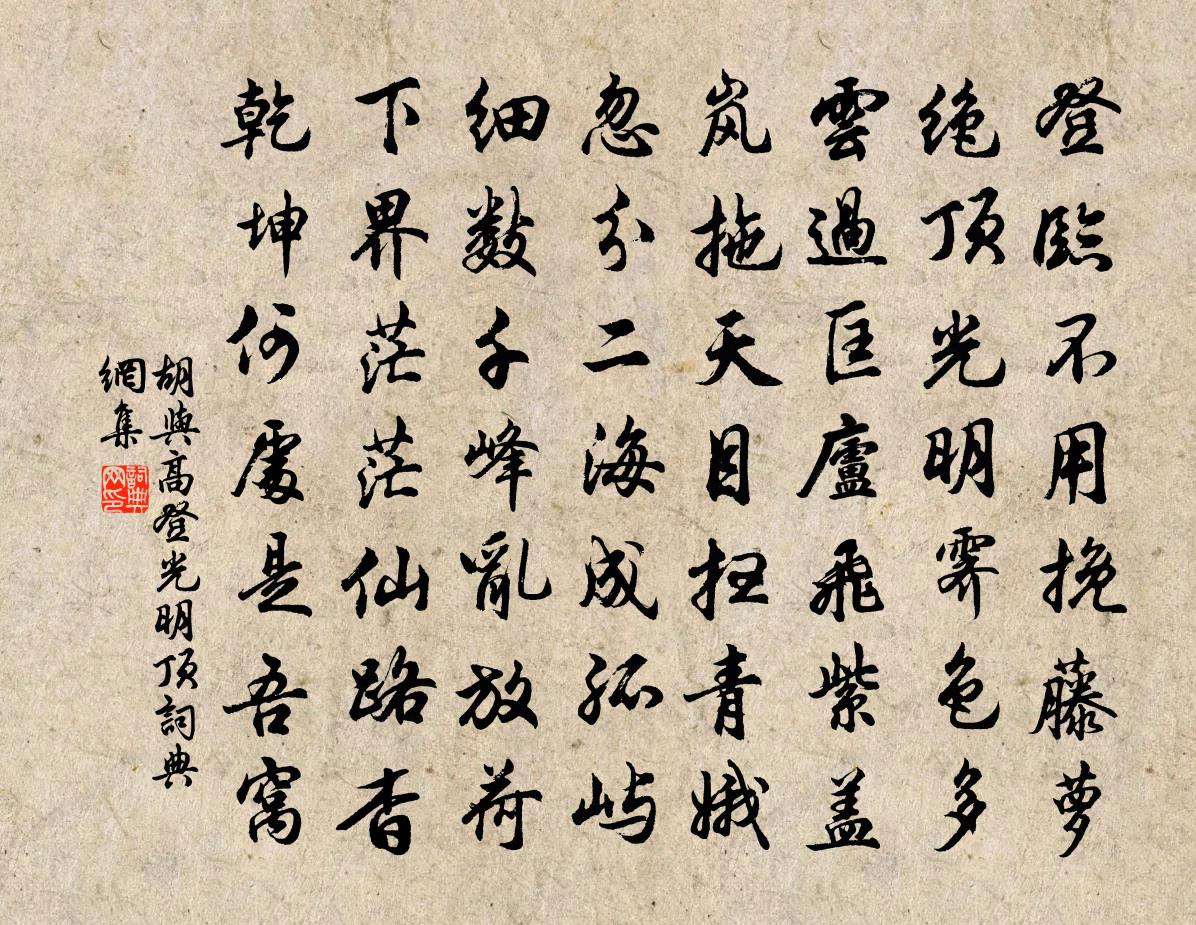 登臨不用挽藤萝
绝顶光明霽色多
雲過匡廬飛紫盖
岚拖天目扫青娥
忽分二海成孤屿
细数千峰亂放荷
下界茫茫仙路杳
乾坤何處是吾窝
胡與高登光明顶詞典
網集
詞典
网印